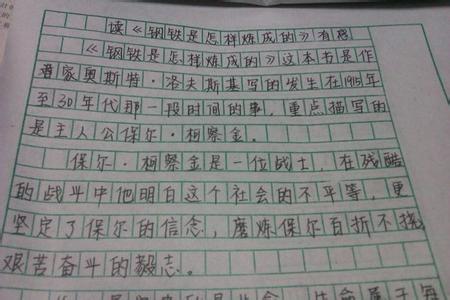 读《钢铁是怎样炼成的》有感
《钢铁是怎样炼成的》这本书是作
者家奥斯特·洛夫斯基写的发生在1915年
至30年代那一段时间的事，重点描写的
是主人公保尔·柯察金。
保尔·柯察金是一位战士，在残酷
的战斗中他明白这个社会的不平等，更
坚定了保尔的信念，磨炼保尔百折不挠
艰苦奋斗的毅志。